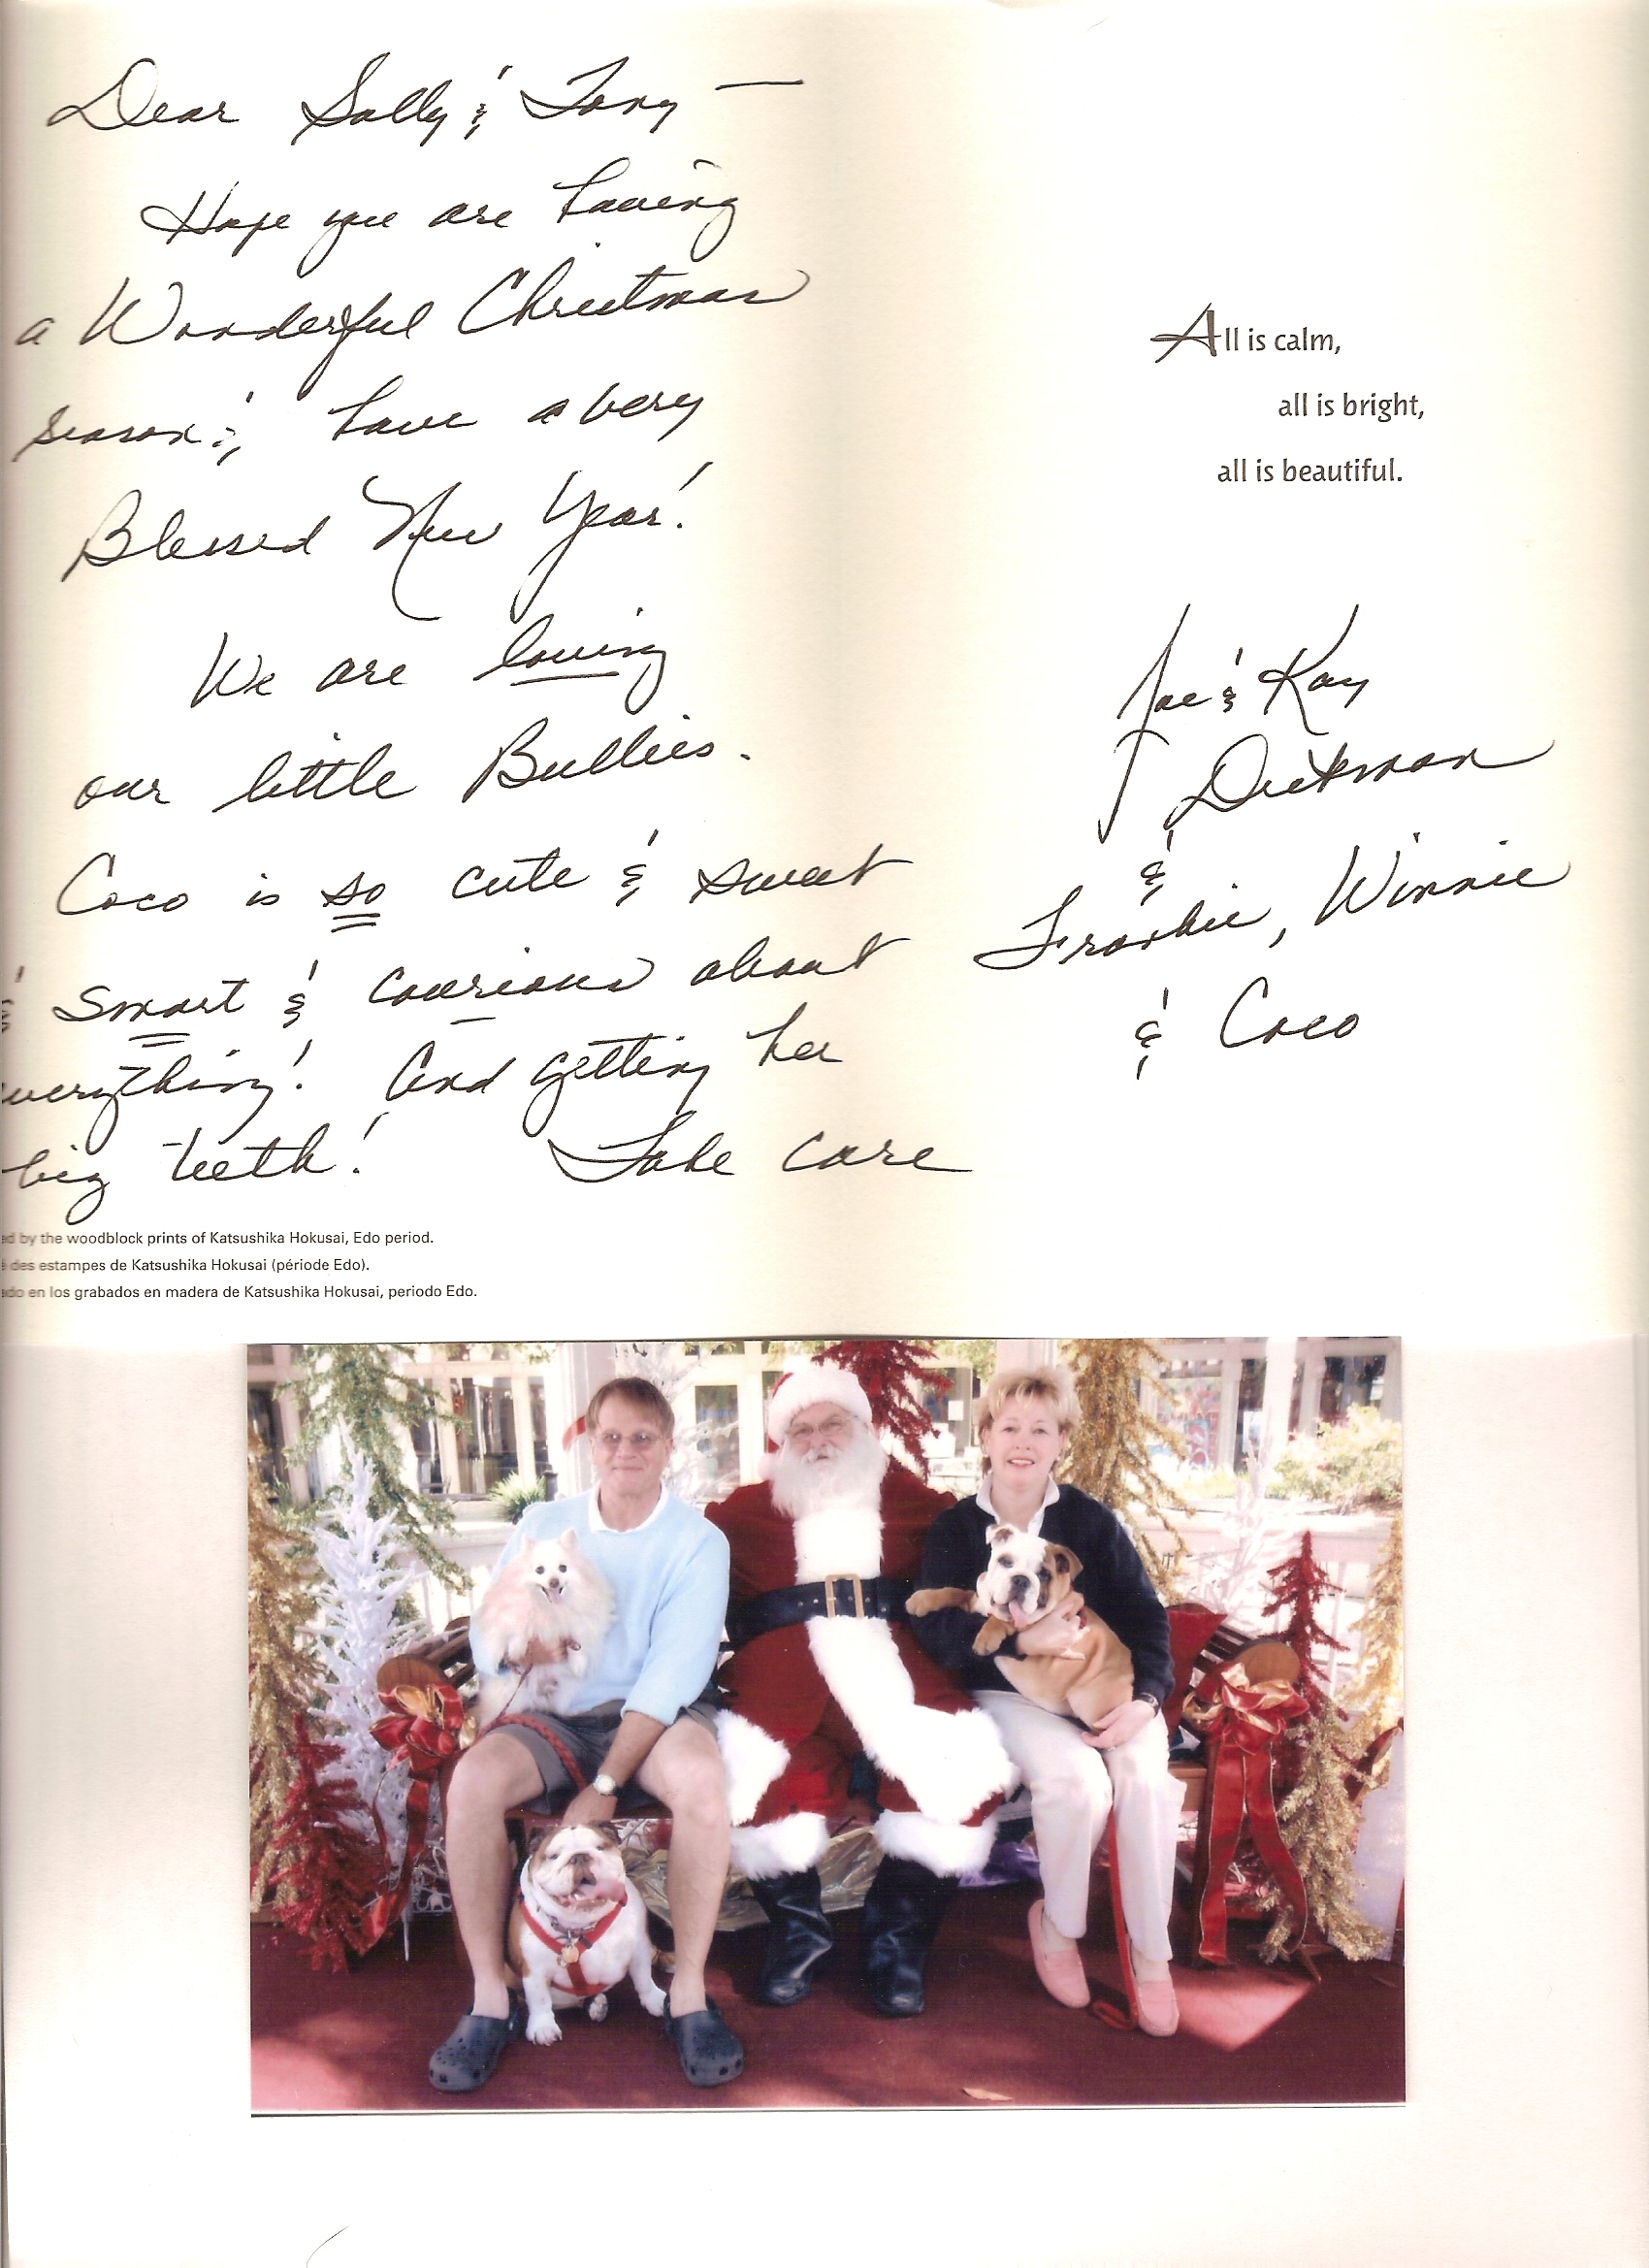 Dear Sally & Tony —
Hope you are having
a Wonderful Christmas
season & have a very
Blessed New Year!
We are loving
our little Bullies.
Coco is so cute & sweet
& smart & courious about
verything! And getting her
big teeth! Take care
ed by the woodblock prints of Katsushika Hokusai, Edo period.
des estampes de Katsushika Hokusai (période Edo).
ado en los grabados en madera de Katsushika Hokusai, periodo Edo.
All is calm,
all is bright,
all is beautiful.
Joe & Kay
&
Frankie, Winnie
& Coco